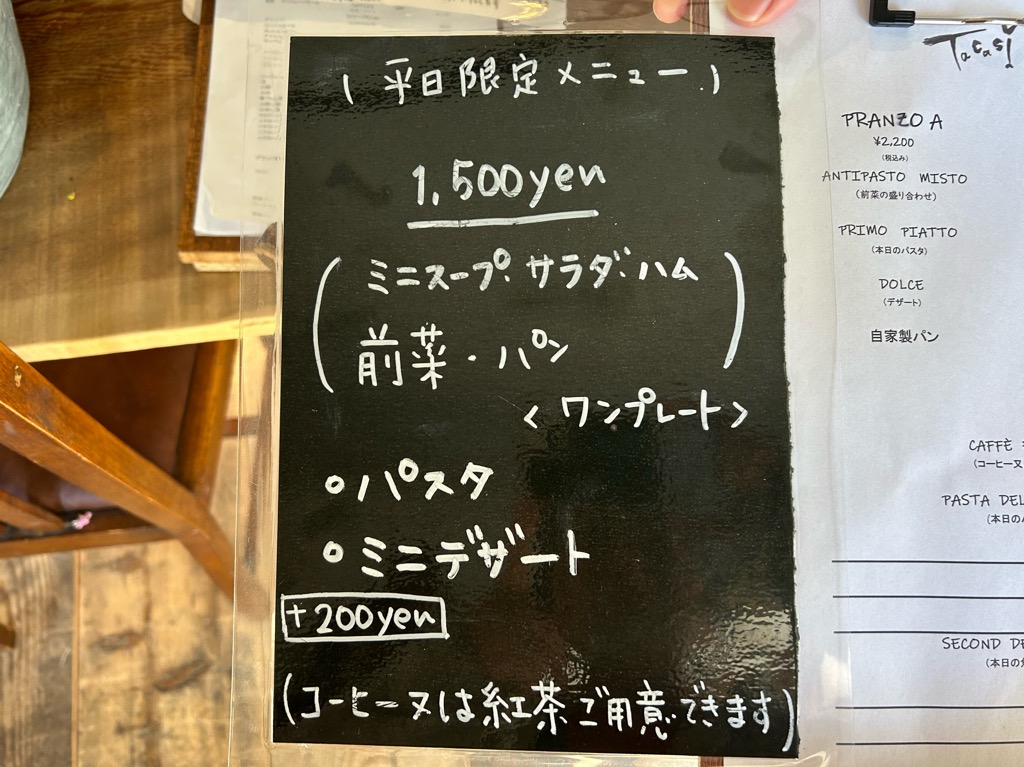 ( 平日限定メニュー )
1,500yen
(ミニスープ・サラダ・ハム
前菜・パン)
<ワンプレート>
○パスタ
○ミニデザート
+200yen
(コーヒー又は紅茶ご用意できます)
Tacasi
PRANZO A
¥2,200
(税込み)
ANTIPASTO MISTO
(前菜の盛り合わせ)
PRIMO PIATTO
(本日のパスタ)
DOLCE
(デザート)
自家製パン
CAFFÈ
(コーヒー又
PASTA DEL
(本日の
SECOND DE
(本日の